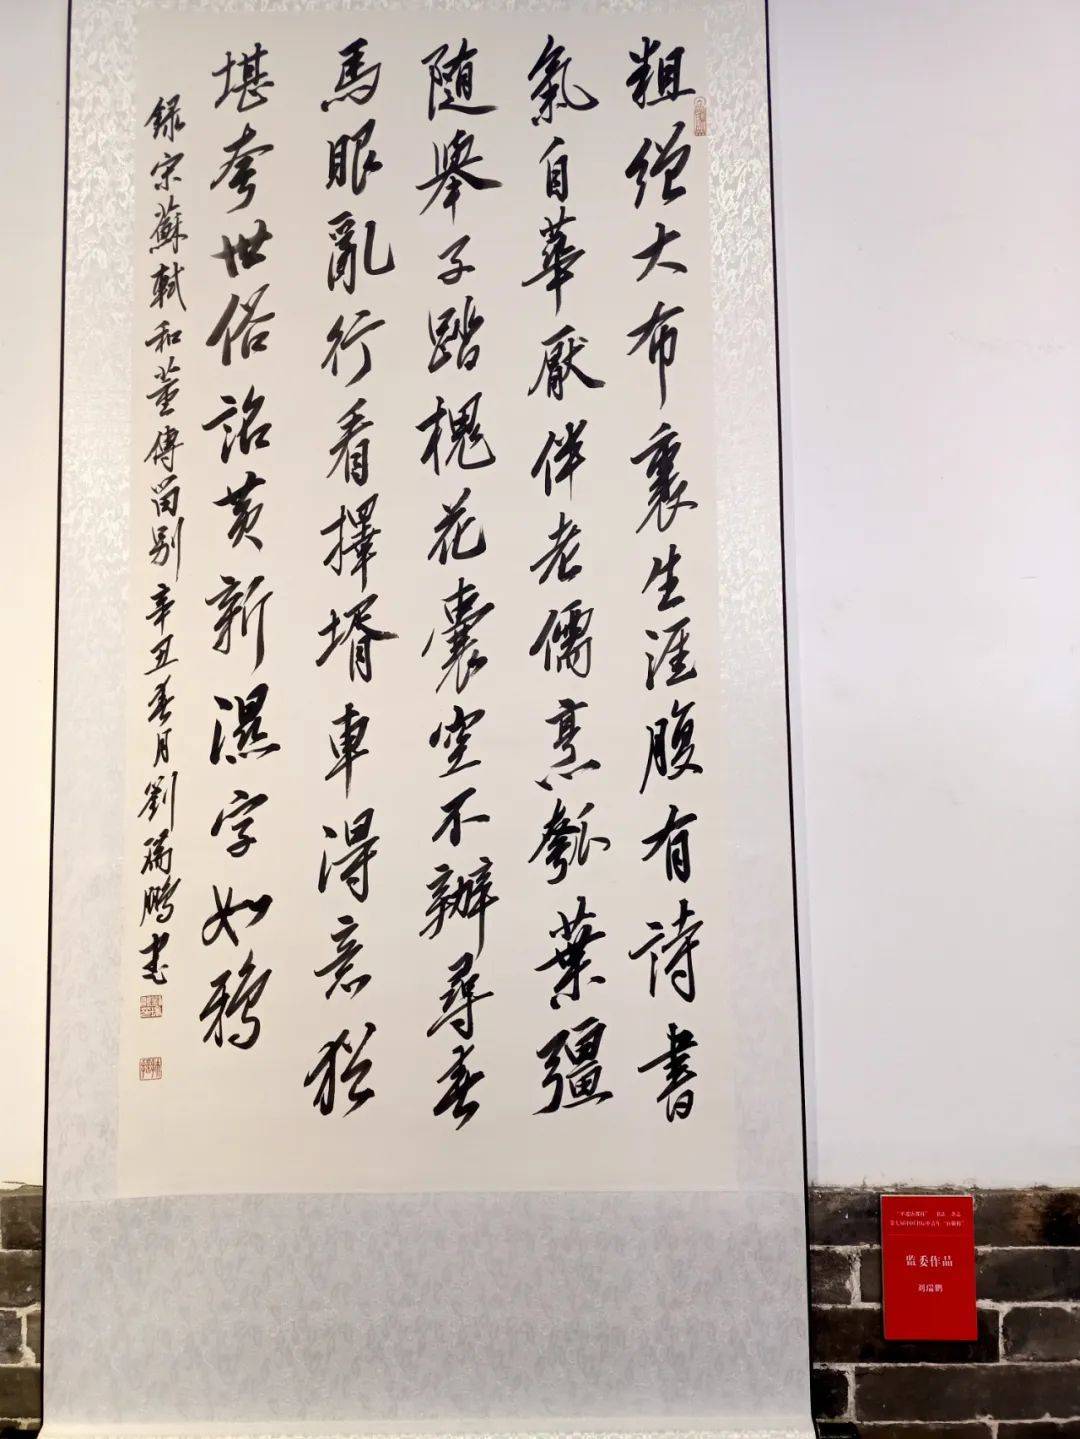 粗繒大布裹生涯腹有詩書
氣自華厭伴老儒烹瓠葉彊
隨舉子踏槐花囊空不辦尋春
馬眼亂行看擇壻車得意猶
堪夸世俗詔黃新濕字如鴉
錄宋蘇軾和董傳留別辛丑春月劉瑞鵬書
监委作品
刘瑞鹏